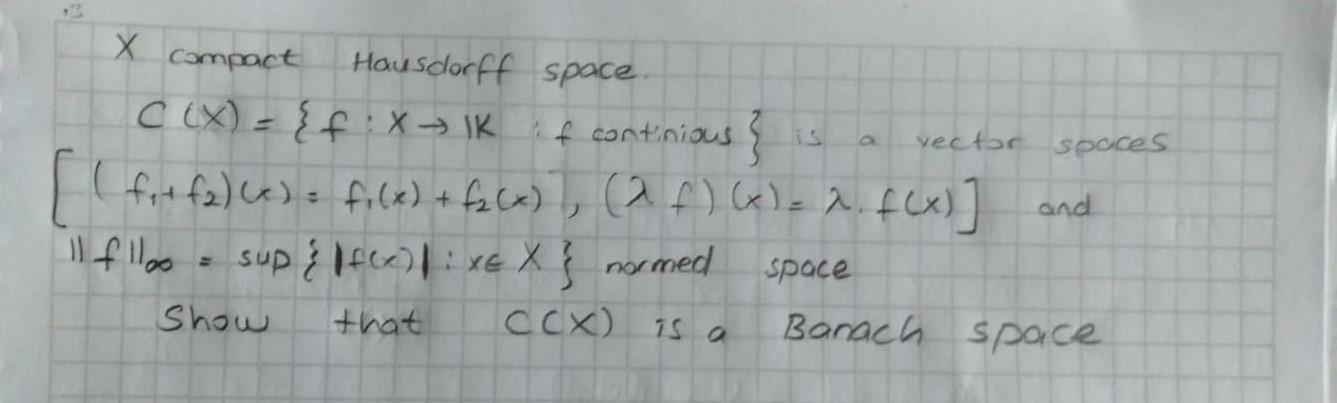 X compact Hausdorff space.
C(X) = { f : X → IK : f continious } is a vector spaces
[ (f₁+f₂)(x) = f₁(x) + f₂(x) , (λf)(x) = λ. f(x) ] and
||f||∞ = sup { |f(x)| : x∈X } normed space
Show that C(X) is a Banach space